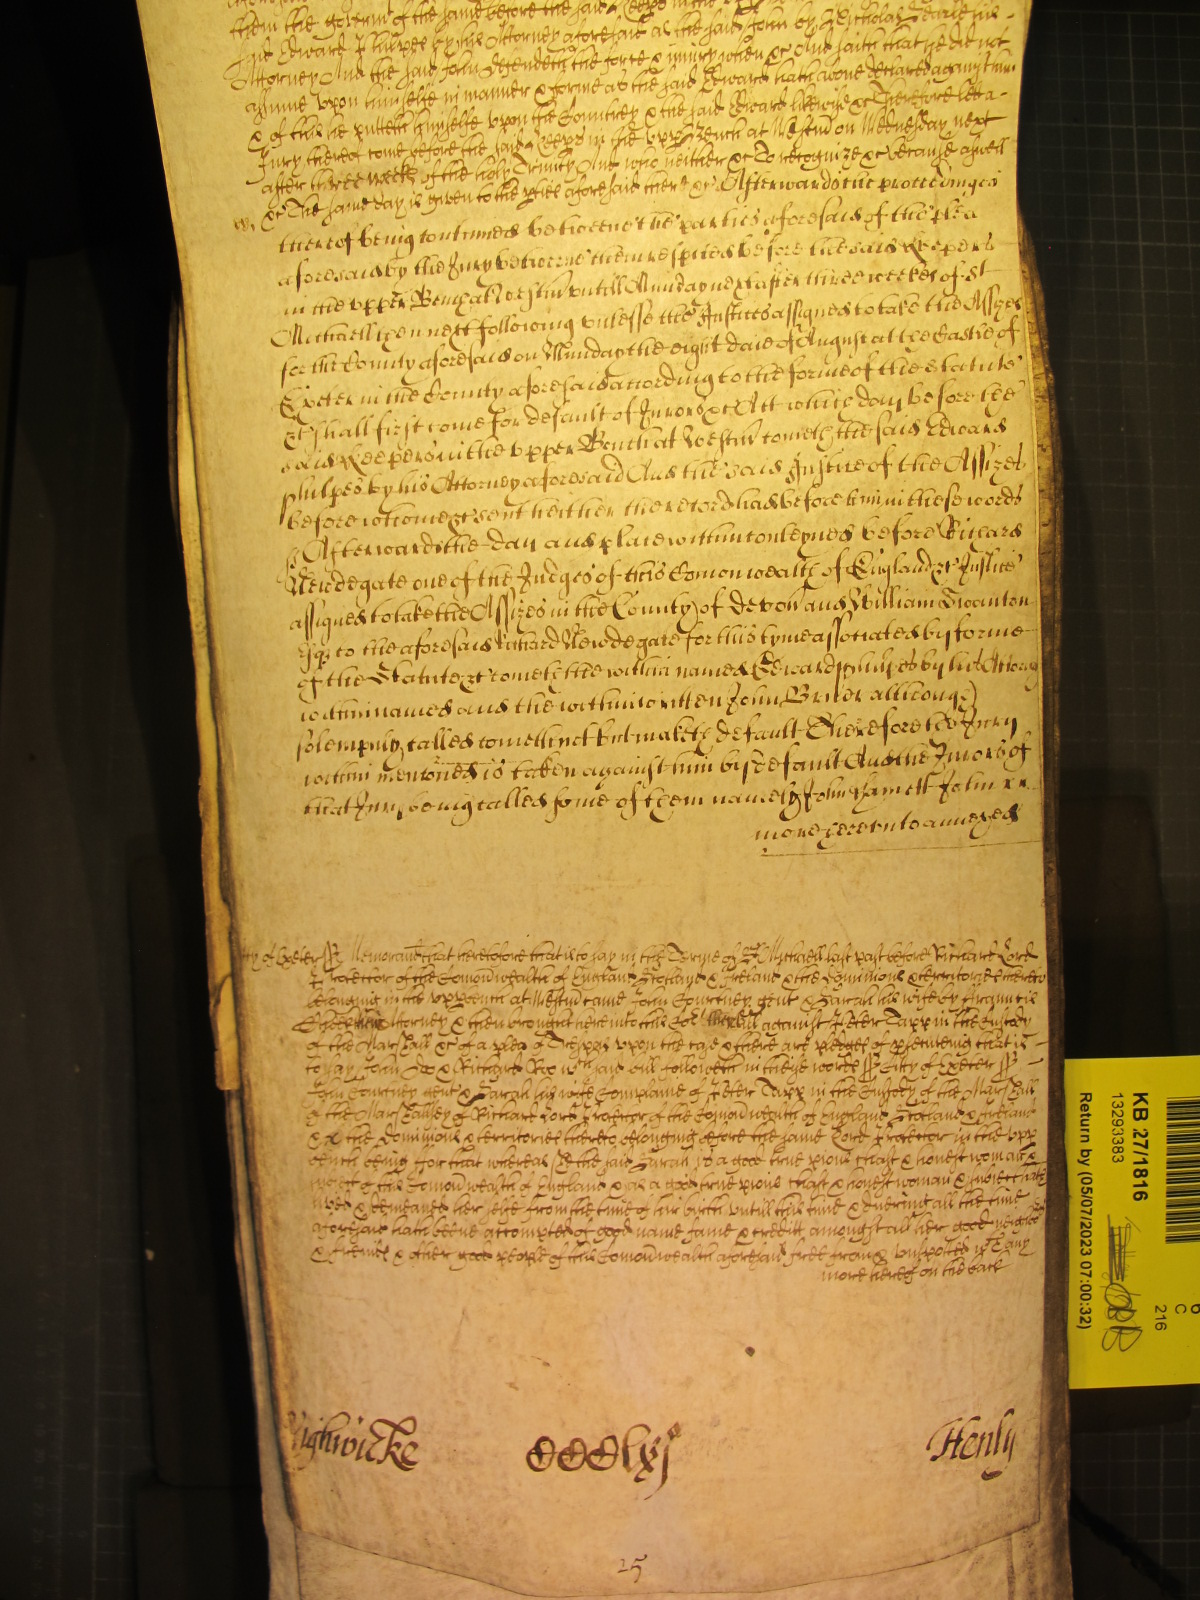 them the govern of the same before the said
said Edward Philpes by his Attorney aforesaid as the said John by Nicholas Searle his
Attorney And the said John defendeth the force & injury when &c And saith that he did not
assume upon himselfe in manner & forme as the said Edward hath above declared against him
& of this he putteth himselfe upon the Countrey & the said Edward likewise &c Therefore let a
Jury thereof come before the said Keeps in the upp Bench at Westm on Wednesday next
after three weeks of the holy Trinity And who neither &c To recognize &c because aswell
&c The same day is given to the pties aforesaid there &c Afterwards the proceedinges
thereof being continued betweene the parties aforesaid of the plea
aforesaid by the Jury betweene them respited before the said Keepers
in the upper Bench at Westm untill Munday next after three weekes of St
Michaell then next following unlesse the Justices assigned to take the Assizes
for the County aforesaid on Munday the eight daie of August at the Castle of
Exeter in the County aforesaid according to the forme of the statute
&c shall first come for default of Jurors &c Att which day before the
said Keepers in the upper Bench at Westm cometh the said Edward
philpes by his Attorney aforesaid And the said Justice of the Assizes
before whome &c sent hether the record had before him in these words
ss Afterwards the day and place within conteyned before Richard
Newdegate one of the Judges of this Comonwealth of England & Justice
assigned to take the Assizes in the County of devon and William Swanton
Esqr to the aforesaid Richard Newdegate for this tyme associated by forme
of the Statute &c cometh the within named Edward philpes by his Attorny
within named and the within written John Bruer although
solempnly called cometh not but maketh default Therefore the Jury
within menconed is taken against him by default And the Jurors of
that Jury being called some of them namely John Hamett John
more hereunto annexed
ty of Exeter ss Memorand that heretofore that is to say in the Terme of St Michaell last past before Richard Lord
Protector of the Comonwealth of England Scotland & Ireland & the Dominions & territories thereto
belonging in the upp bench at Westm came John Courtney gent & Sarah his wife by
their Attorney & then brought here into this Cort their bill against Peter Tapp in the Custody
of the Marshall &c of a plea of Trespas upon the case & there are pledges of prosecuting that is
to say John Doe & Richard Roe wch said bill followeth in theise words ss City of Exeter ss
John Courtney gent & Sarah his wife Complaine of Peter Tapp in the Custody of the Marshall
of the Marshallsey of Richard Lord Protector of the Comonwealth of England Scotland & Ireland
& of the Dominions & territories thereto belonging before the same Lord Protector in the upp
bench being for that whereas she the said Sarah is a good true pious chast & honest woman &
of this Comonwealth of England & as a good true pious chast & honest woman & subiect hath
lived & demeaned her selfe from the time of her birth untill this time & during all the time
aforesaid hath beene accompted of good name fame & creditt amongst all her good neighbors
& friends & other good people of this Comonwealth aforesaid free from & unspotted wth any
more hereof on the back
ighwicke
CCClxj
Henly
25
KB 27/1816
13293383
Return by (05/07/2023 07:00:32)
C
216